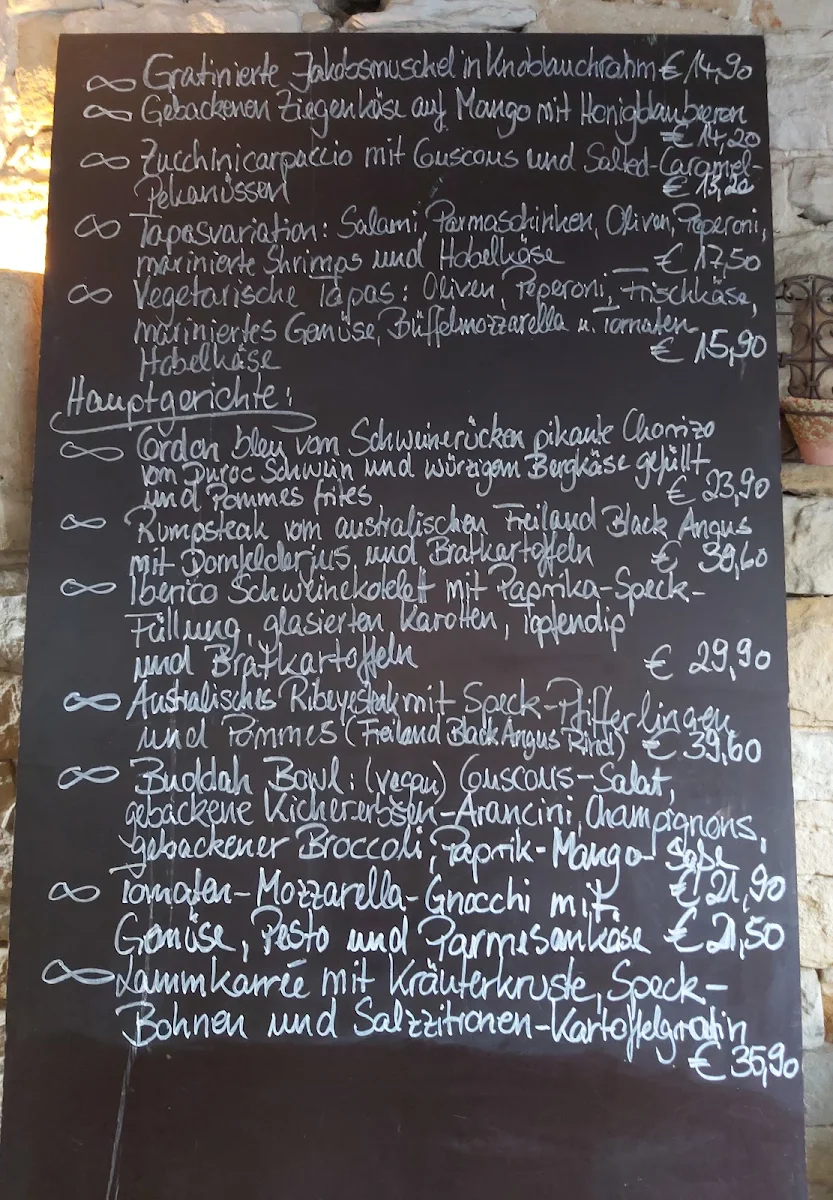 ∞ Gratinierte Jakobsmuschel in Knoblauchrahm € 14,90
∞ Gebackenen Ziegenkäse auf Mango mit Honigblaubeeren
€ 14,20
∞ Zucchinicarpaccio mit Couscous und Salted-Caramel-
Pekanüssen € 13,20
∞ Tapasvariation: Salami, Parmaschinken, Oliven, Peperoni,
marinierte Shrimps und Hobelkäse € 17,50
∞ Vegetarische Tapas: Oliven, Peperoni, Frischkäse,
mariniertes Gemüse, Büffelmozzarella u. Tomaten
Hobelkäse € 15,90
Hauptgerichte:
∞ Cordon bleu vom Schweinerücken pikante Chorizo
vom Duroc Schwein und würzigem Bergkäse gefüllt
und Pommes frites € 23,90
∞ Rumpsteak vom australischen Freiland Black Angus
mit Dornfelderjus und Bratkartoffeln € 38,60
∞ Iberico Schweinekotelet mit Paprika-Speck-
Füllung, glasierten Karotten, Topfendip
und Bratkartoffeln € 29,90
∞ Australisches Ribeyesteak mit Speck-Pfifferlingen
und Pommes (Freiland Black Angus Rind) € 39,60
∞ Buddah Bowl: (vegan) Couscous-Salat,
gebackene Kichererbsen-Arancini, Champignons,
gebackener Broccoli, Paprik-Mango-Salsa
€ 21,90
∞ Tomaten-Mozzarella-Gnocchi mit
Gemüse, Pesto und Parmesankäse € 21,50
∞ Lammkarrée mit Kräuterkruste, Speck-
Bohnen und Salzzitronen-Kartoffelgratin
€ 35,90